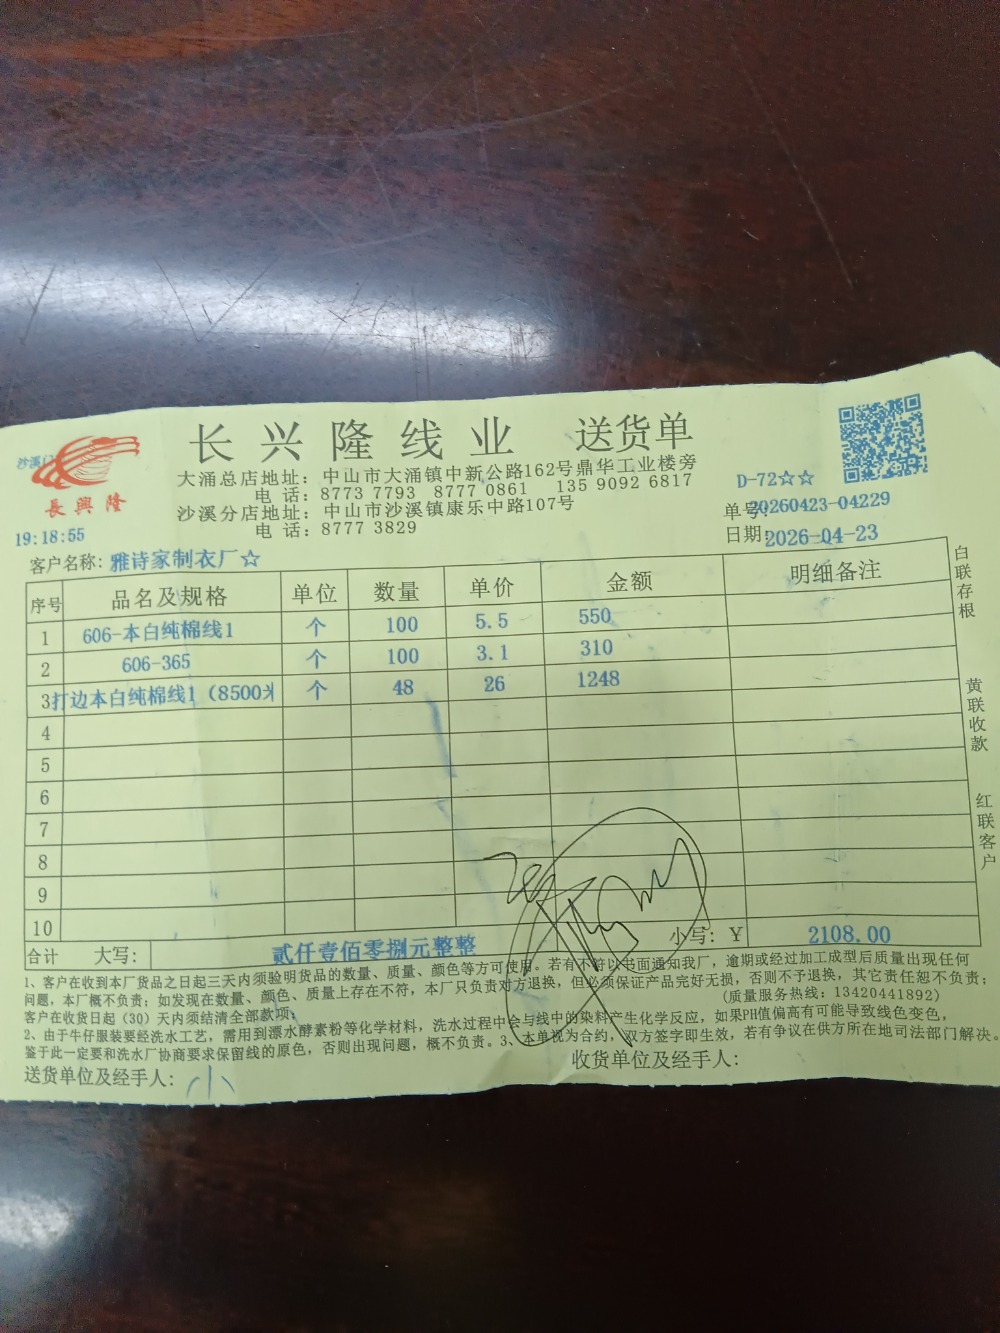 长兴隆线业 送货单
沙溪门
長興隆
大涌总店地址：中山市大涌镇中新公路162号鼎华工业楼旁
电 话：8773 7793 8777 0861 135 9092 6817
沙溪分店地址：中山市沙溪镇康乐中路107号
电 话：8777 3829
D-72☆☆
单号：20260423-04229
日期：2026-04-23
19:18:55
客户名称：雅诗家制衣厂☆
序号 品名及规格 单位 数量 单价 金额 明细备注
1 606-本白纯棉线1 个 100 5.5 550
2 606-365 个 100 3.1 310
3 打边本白纯棉线1（8500米 个 48 26 1248
4
5
6
7
8
9
10
合计 大写：贰仟壹佰零捌元整整 小写：Y 2108.00
1、客户在收到本厂货品之日起三天内须验明货品的数量、质量、颜色等方可使用。若有不符以书面通知我厂，逾期或经过加工成型后质量出现任何
问题，本厂概不负责；如发现在数量、颜色、质量上存在不符，本厂只负责对方退换，但必须保证产品完好无损，否则不予退换，其它责任恕不负责；
客户在收货日起（30）天内须结清全部款项。 （质量服务热线：13420441892）
2、由于牛仔服装要经洗水工艺，需用到漂水酵素粉等化学材料，洗水过程中会与线中的染料产生化学反应，如果PH值偏高有可能导致线色变色，
鉴于此一定要和洗水厂协商要求保留线的原色，否则出现问题，概不负责。3、本单视为合约，双方签字即生效，若有争议在供方所在地司法部门解决。
送货单位及经手人：小 收货单位及经手人：
白联存根
黄联收款
红联客户